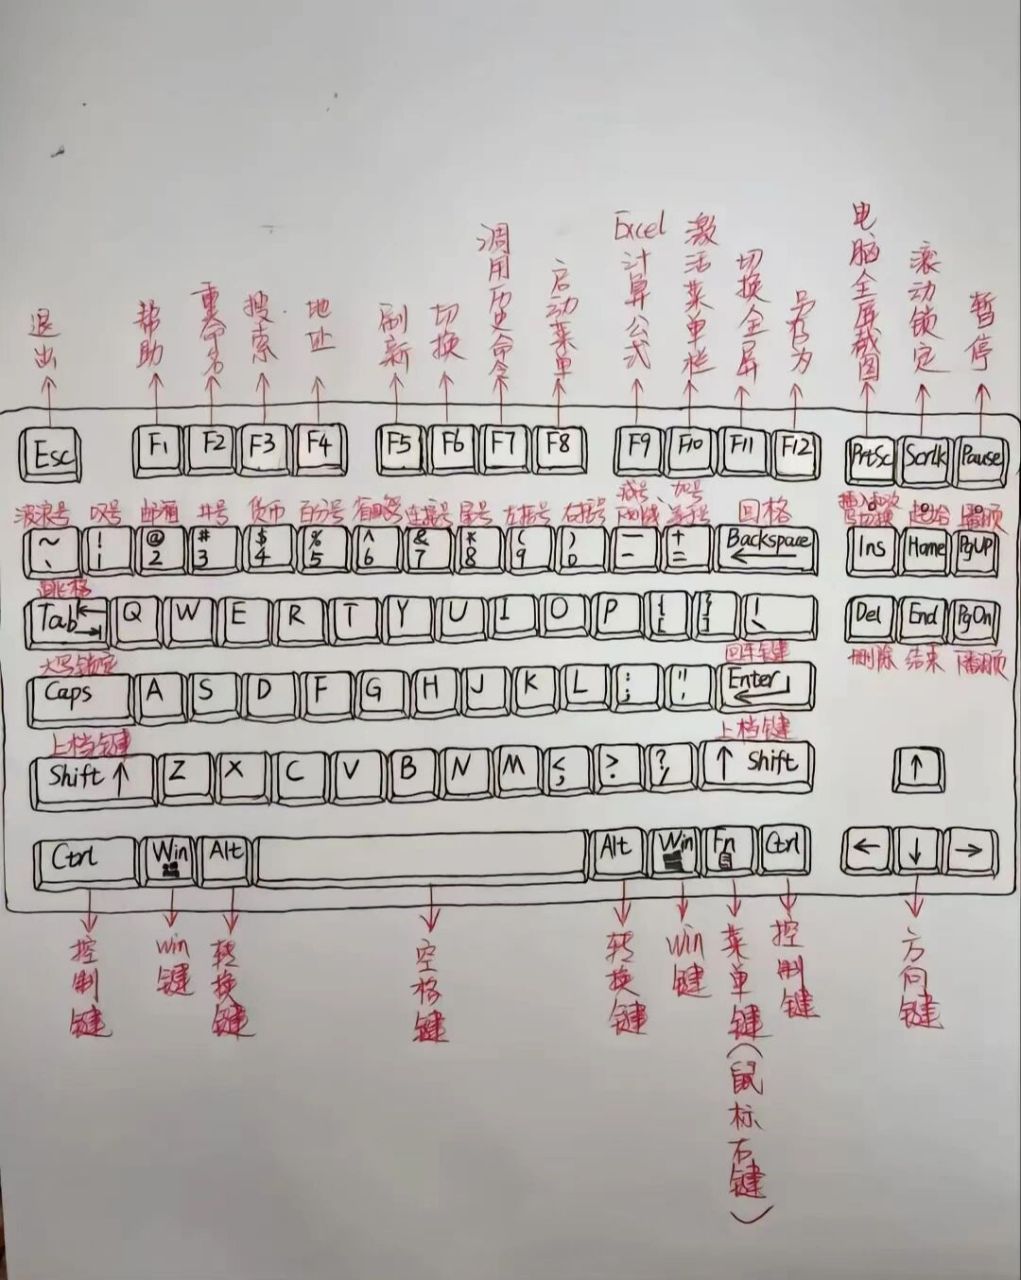 退出 帮助 重命名 搜索 地址 刷新 切换 调用历史命令 启动菜单 Excel计算公式 激活菜单栏 切换全屏 另存为 电脑全屏截图 滚动锁定 暂停
Esc F1 F2 F3 F4 F5 F6 F7 F8 F9 F10 F11 F12 PrtSc Scrlk Pause
波浪号 叹号 邮箱 井号 货币 百分号 连接号 星号 左括号 右括号 减号 下划线 加号 等号 回格
~ ! @ # $ % ^ & * ( ) — + Backspace Ins Home PgUP
、 | 2 3 4 5 6 7 8 9 0 - =
跳格
Tab Q W E R T Y U I O P { } | \ Del End PgDn
[ ]
大写锁定 回车键 删除 结束 下翻页
Caps A S D F G H J K L : ; " ' Enter
上档键 上档键
Shift ↑ Z X C V B N M < , > . ? / ↑ Shift ↑
Ctrl Win Alt Alt Win Fn Ctrl ← ↓ →
控制键 win键 转换键 空格键 转换键 win键 菜单键(鼠标右键) 控制键 方向键